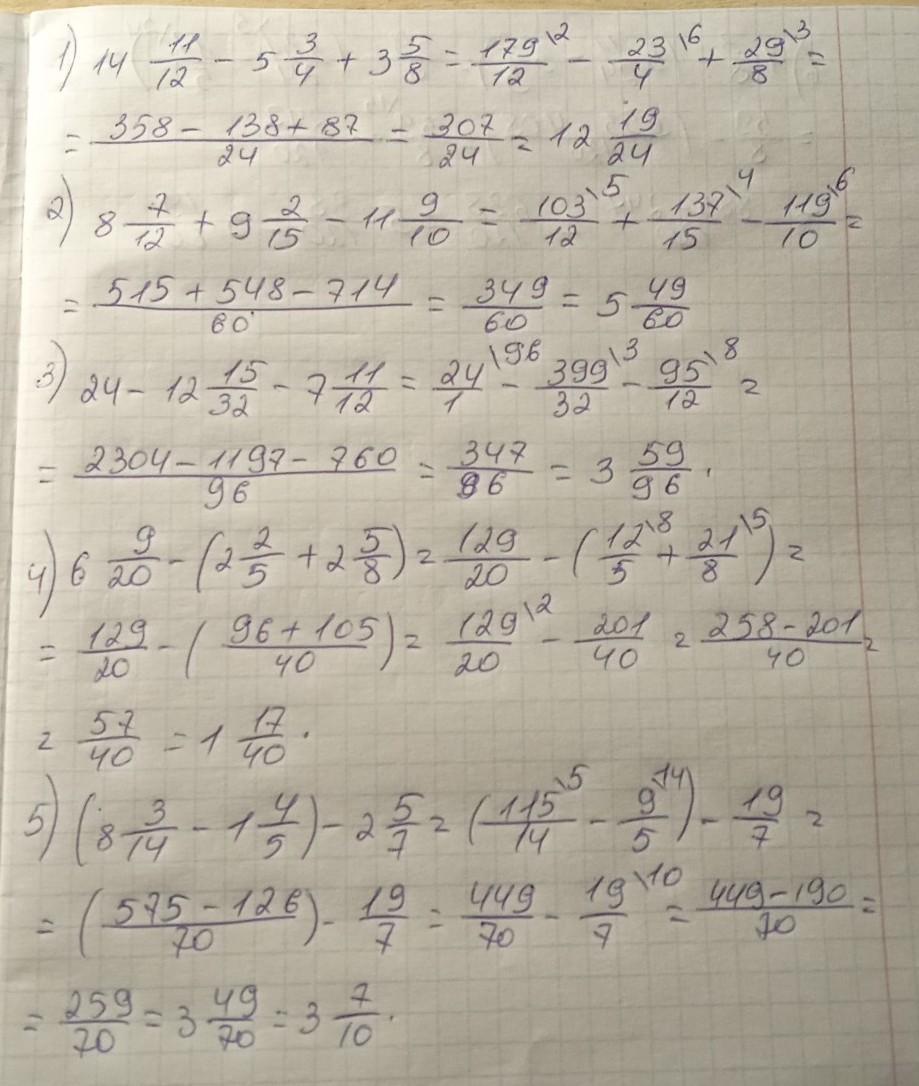 1) 14 11/12 - 5 3/4 + 3 5/8 = 179\2/12 - 23\6/4 + 29\3/8 =
= 358 - 138 + 87/24 = 307/24 = 12 19/24
2) 8 7/12 + 9 2/15 - 11 9/10 = 103\5/12 + 137\4/15 - 119\6/10 =
= 515 + 548 - 714/60 = 349/60 = 5 49/60
3) 24 - 12 15/32 - 7 11/12 = 24\96/1 - 399\3/32 - 95\8/12 =
= 2304 - 1197 - 760/96 = 347/96 = 3 59/96.
4) 6 9/20 - (2 2/5 + 2 5/8) = 129/20 - (12\8/5 + 21\5/8) =
= 129/20 - (96 + 105/40) = 129\2/20 - 201/40 = 258 - 201/40 =
= 57/40 = 1 17/40.
5) (8 3/14 - 1 4/5) - 2 5/7 = (115\5/14 - 9\14/5) - 19/7 =
= (575 - 126/70) - 19/7 = 449/70 - 19\10/7 = 449 - 190/70 =
= 259/70 = 3 49/70 = 3 7/10.